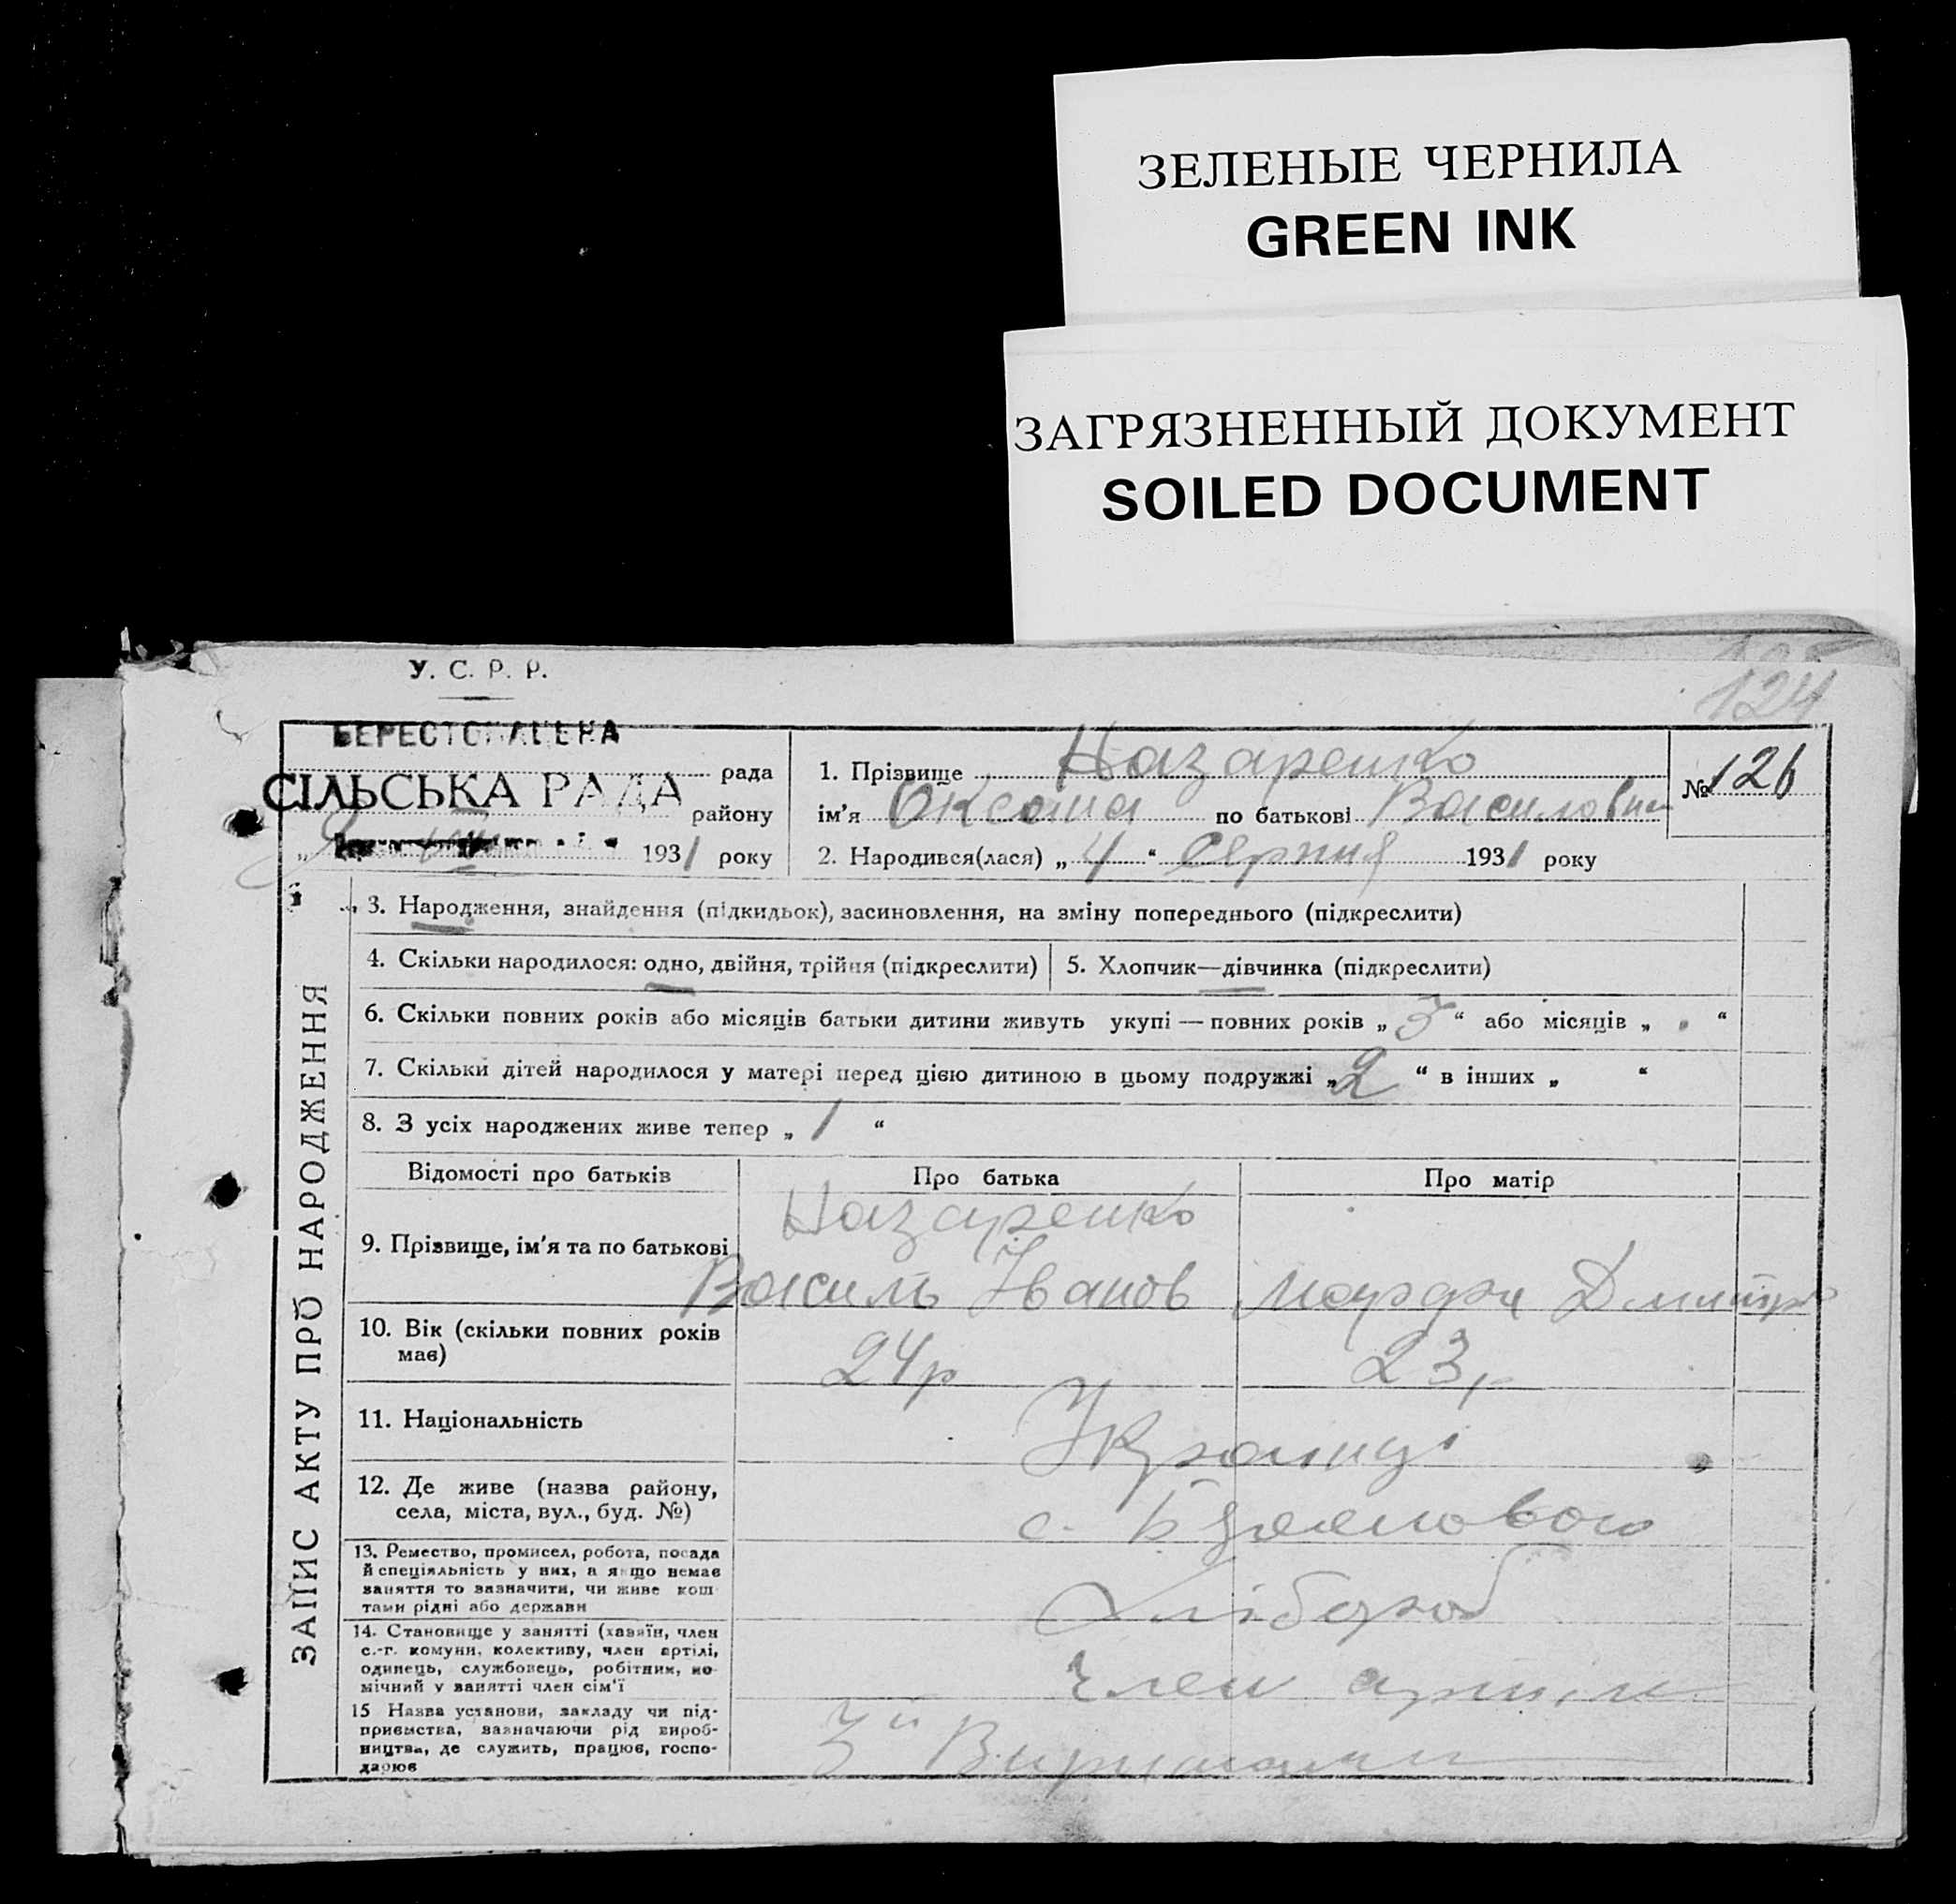 ЗЕЛЕНЫЕ ЧЕРНИЛА
GREEN INK
ЗАГРЯЗНЕННЫЙ ДОКУМЕНТ
SOILED DOCUMENT
У. С. Р. Р.
124
рада
СІЛЬСЬКА РАДА
району
1931 року
1. Прізвище Назаренко
ім'я Оксана по батькові Василовна
2. Народився(лася) „4“ Серпня 1931 року
№ 126
ЗАПИС АКТУ ПРО НАРОДЖЕННЯ
3. Народження, знайдення (підкидьок), засиновлення, на зміну попереднього (підкреслити)
4. Скільки народилося: одно, двійня, трійня (підкреслити)
5. Хлопчик—дівчинка (підкреслити)
6. Скільки повних років або місяців батьки дитини живуть укупі — повних років „ “ або місяців „ “
7. Скільки дітей народилося у матері перед цією дитиною в цьому подружжі „2“ в інших „ “
8. З усіх народжених живе тепер „1“
Відомості про батьків
Про батька
Про матір
9. Прізвище, ім'я та по батькові
Назаренко
Василь Іванов
Дмитр
10. Вік (скільки повних рохів
має)
24р
23
11. Національність
Українці
12. Де живе (назва району,
села, міста, вул., буд. №)
с.
13. Ремество, промисел, робота, посада
й спеціяльність у них, а якщо немає
заняття то зазначити, чи живе кош
тами рідні або держави
Хлібороб
14. Становище у занятті (хазяїн, член
с.-г. комуни, колективу, член артілі,
одинець, службовець, робітник, по-
мічний у занятті член сім'ї
Член артіли
15 Назва установи, закладу чи під-
приємства, зазначаючи рід вироб-
ництва, де служить, працює, госпо-
дарює